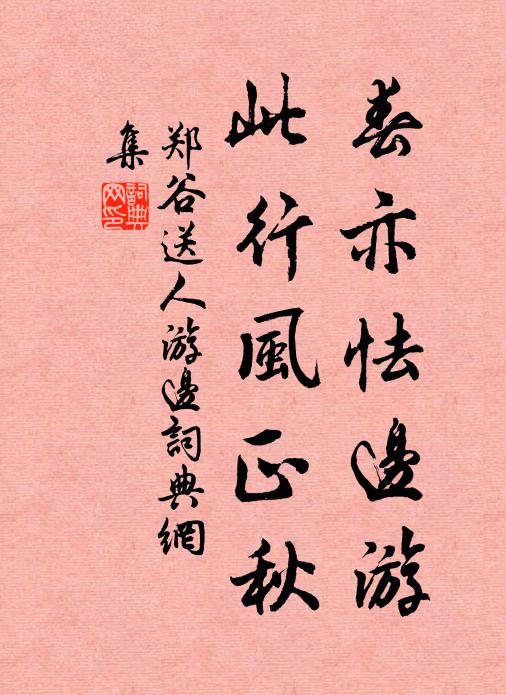 春亦怯邊游
此行風正秋
郑谷送人游邊詞典網
集
詞典
网印